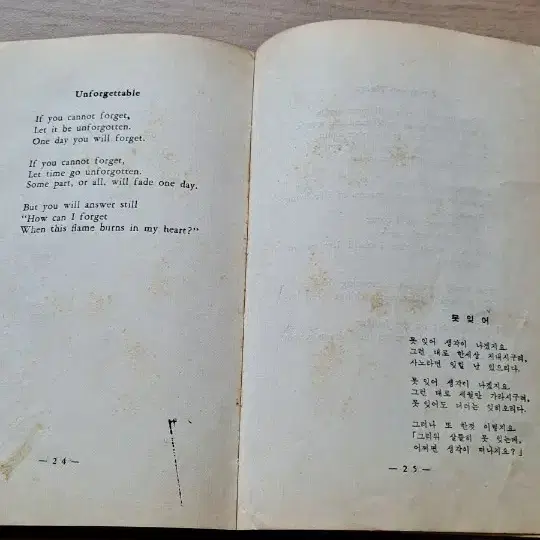 Unforgettable
If you cannot forget,
Let it be unforgotten.
One day you will forget.
If you cannot forget,
Let time go unforgotten.
Some part, or all, will fade one day.
But you will answer still
"How can I forget
When this flame burns in my heart?"
— 24 —
못 잊어
못 잊어 생각이 나겠지요
그런 대로 한세상 지내시구려,
사노라면 잊힐 날 있으리다.
못 잊어 생각이 나겠지요
그런 대로 세월만 가라시구려,
못 잊어도 더러는 잊히오리다.
그러나 또 한껏 이렇지요
「그리워 살뜰히 못 잊는데,
어쩌면 생각이 떠나지요?」
— 25 —